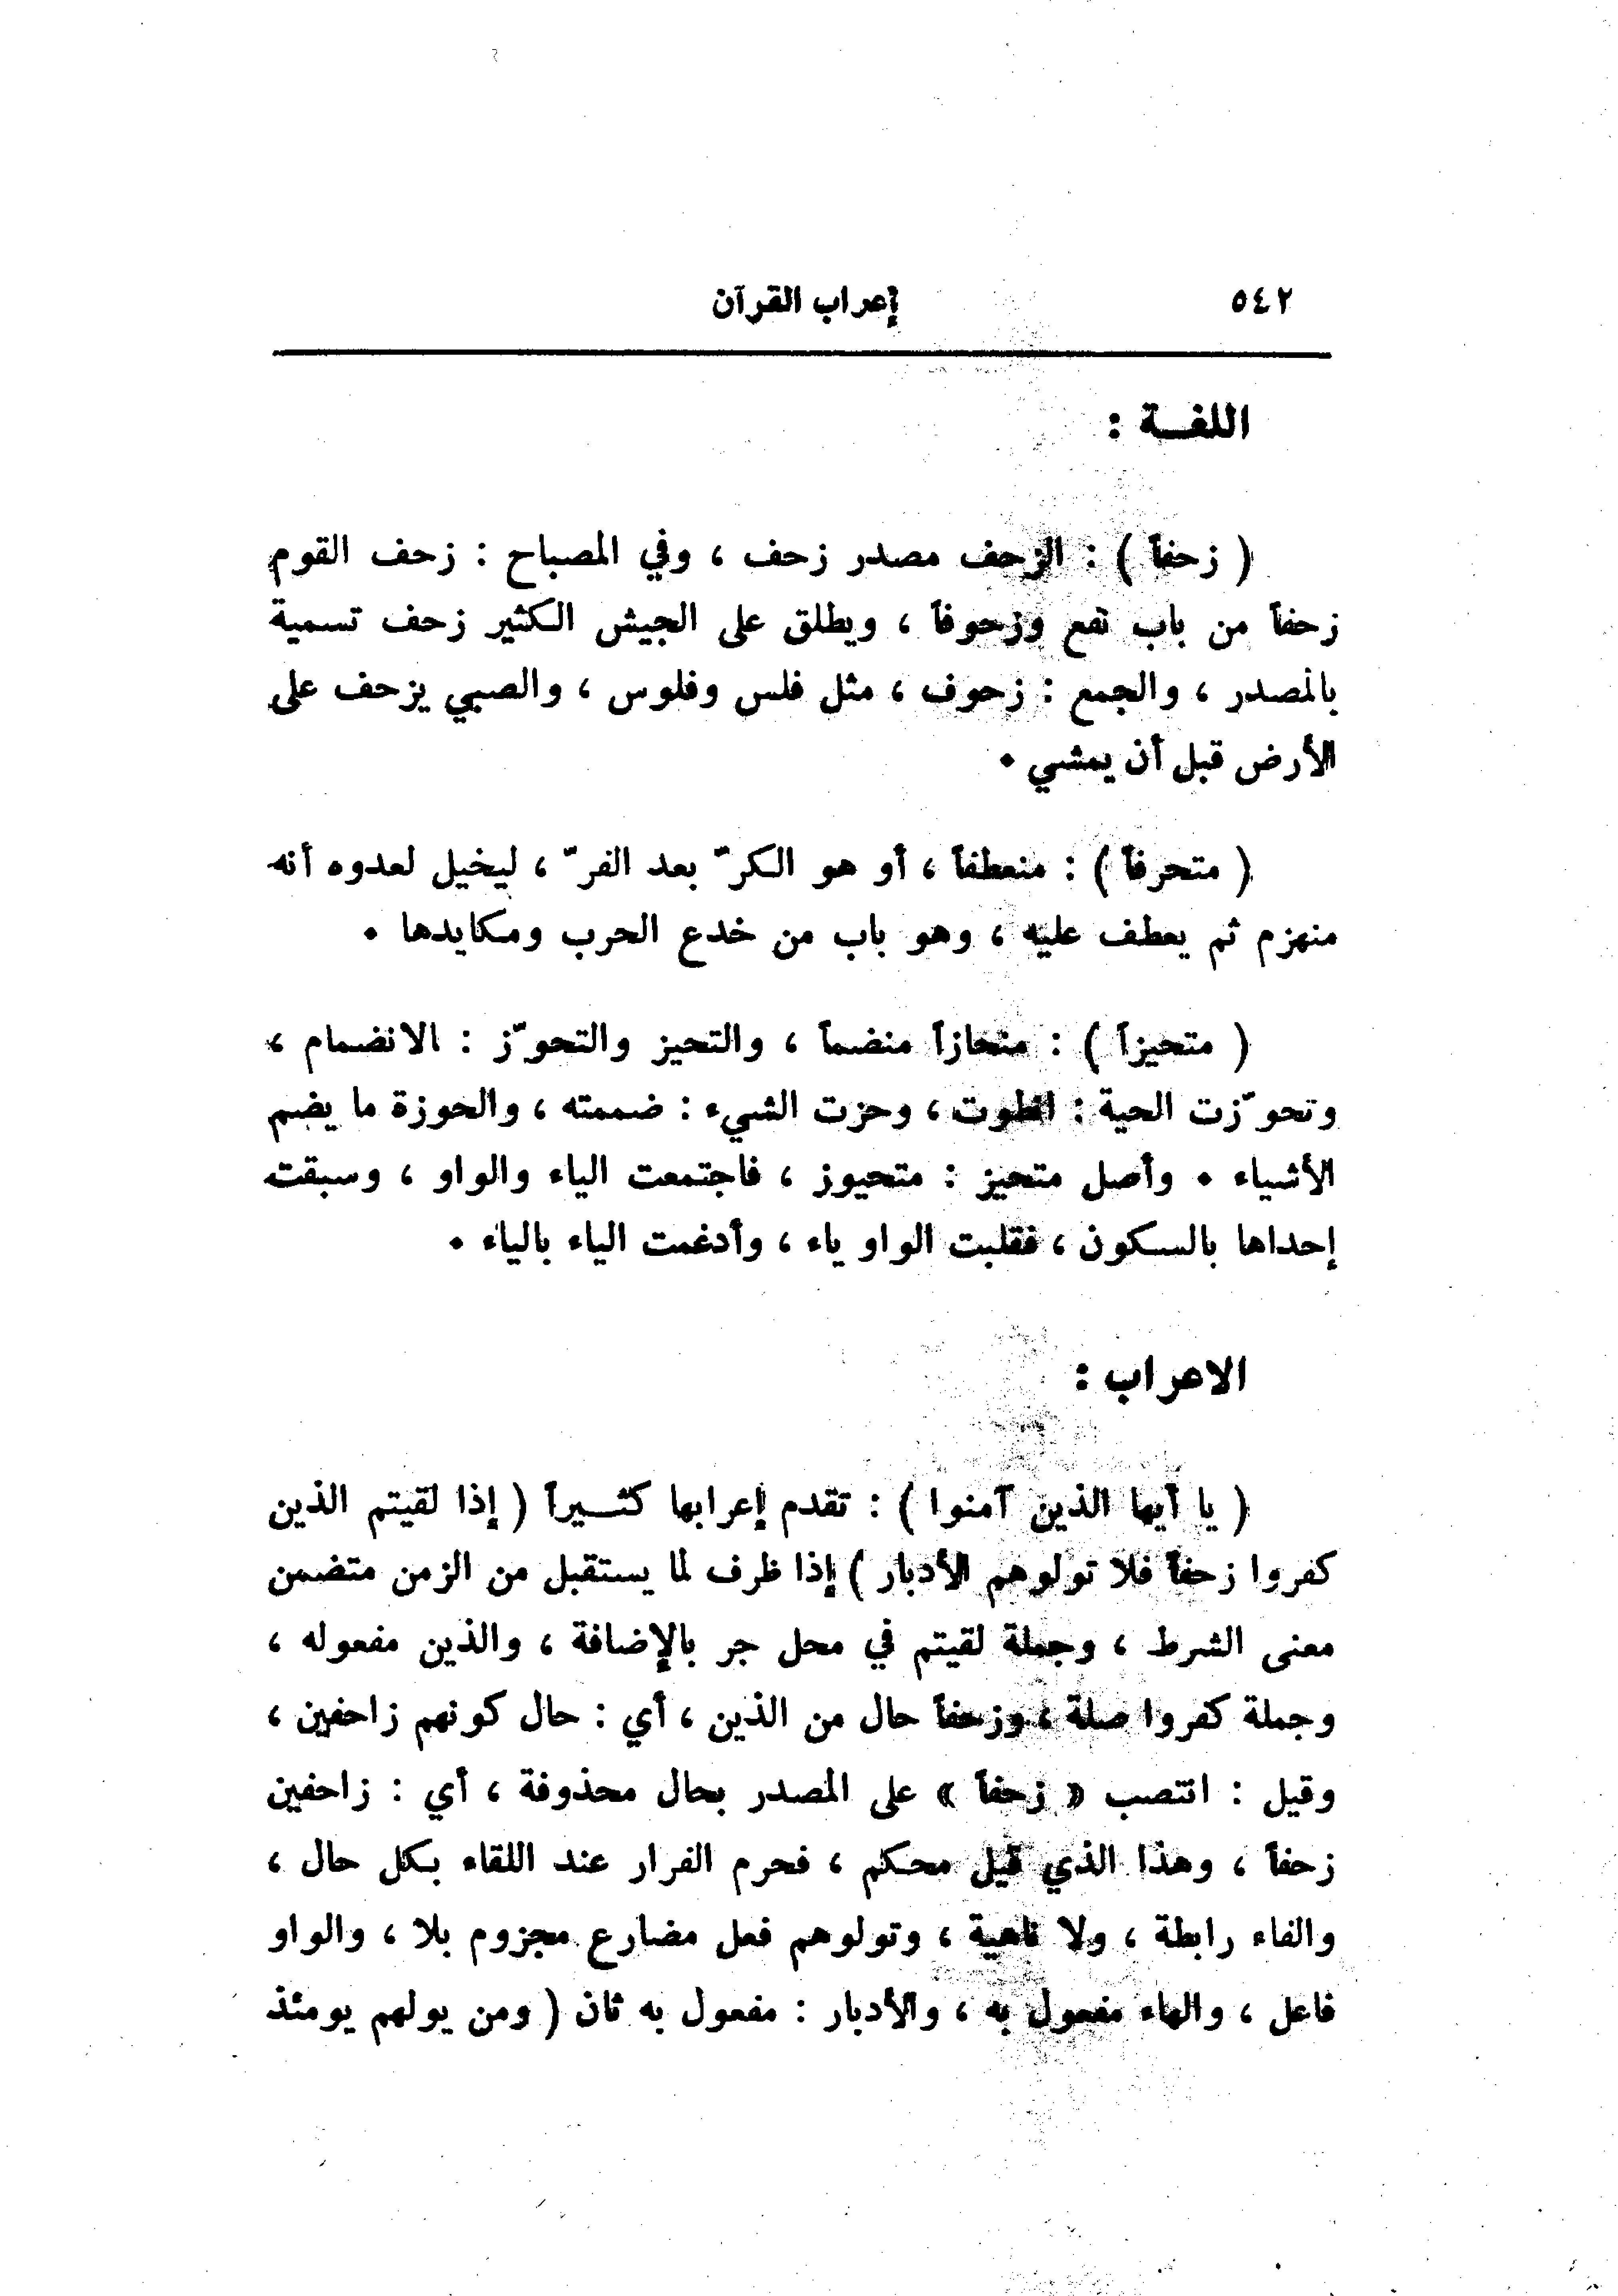 ٥٤٢ إعراب القرآن
اللغة :
( زحفاً ) : الزحف مصدر زحف ، وفي المصباح : زحف القوم
زحفاً من باب نفع وزحوفاً ، ويطلق على الجيش الكثير زحف تسمية
بالمصدر ، والجمع : زحوف ، مثل فلس وفلوس ، والصبي يزحف على
الأرض قبل أن يمشي .
( متحرفاً ) : منعطفاً ، أو هو الكرّ بعد الفرّ ، ليخيل لعدوه أنه
منهزم ثم يعطف عليه ، وهو باب من خدع الحرب ومكايدها .
( متحيزاً ) : منحازاً منضماً ، والتحيز والتحوّز : الانضمام ،
وتحوّزت الحية : انطوت ، وحزت الشيء : ضممته ، والحوزة ما يضم
الأشياء . وأصل متحيز : متحيوز ، فاجتمعت الياء والواو ، وسبقت
إحداها بالسكون ، فقلبت الواو ياء ، وأدغمت الياء بالياء .
الاعراب :
( يا أيها الذين آمنوا ) : تقدم إعرابها كثيراً ( إذا لقيتم الذين
كفروا زحفاً فلا تولوهم الأدبار ) إذا ظرف لما يستقبل من الزمن متضمن
معنى الشرط ، وجملة لقيتم في محل جر بالإضافة ، والذين مفعوله ،
وجملة كفروا صلة ، وزحفاً حال من الذين ، أي : حال كونهم زاحفين ،
وقيل : انتصب « زحفاً » على المصدر بحال محذوفة ، أي : زاحفين
زحفاً ، وهذا الذي قيل محكم ، فحرم الفرار عند اللقاء بكل حال ،
والفاء رابطة ، ولا ناهية ، وتولوهم فعل مضارع مجزوم بلا ، والواو
فاعل ، والهاء مفعول به ، والأدبار : مفعول به ثان ( ومن يولهم يومئذ